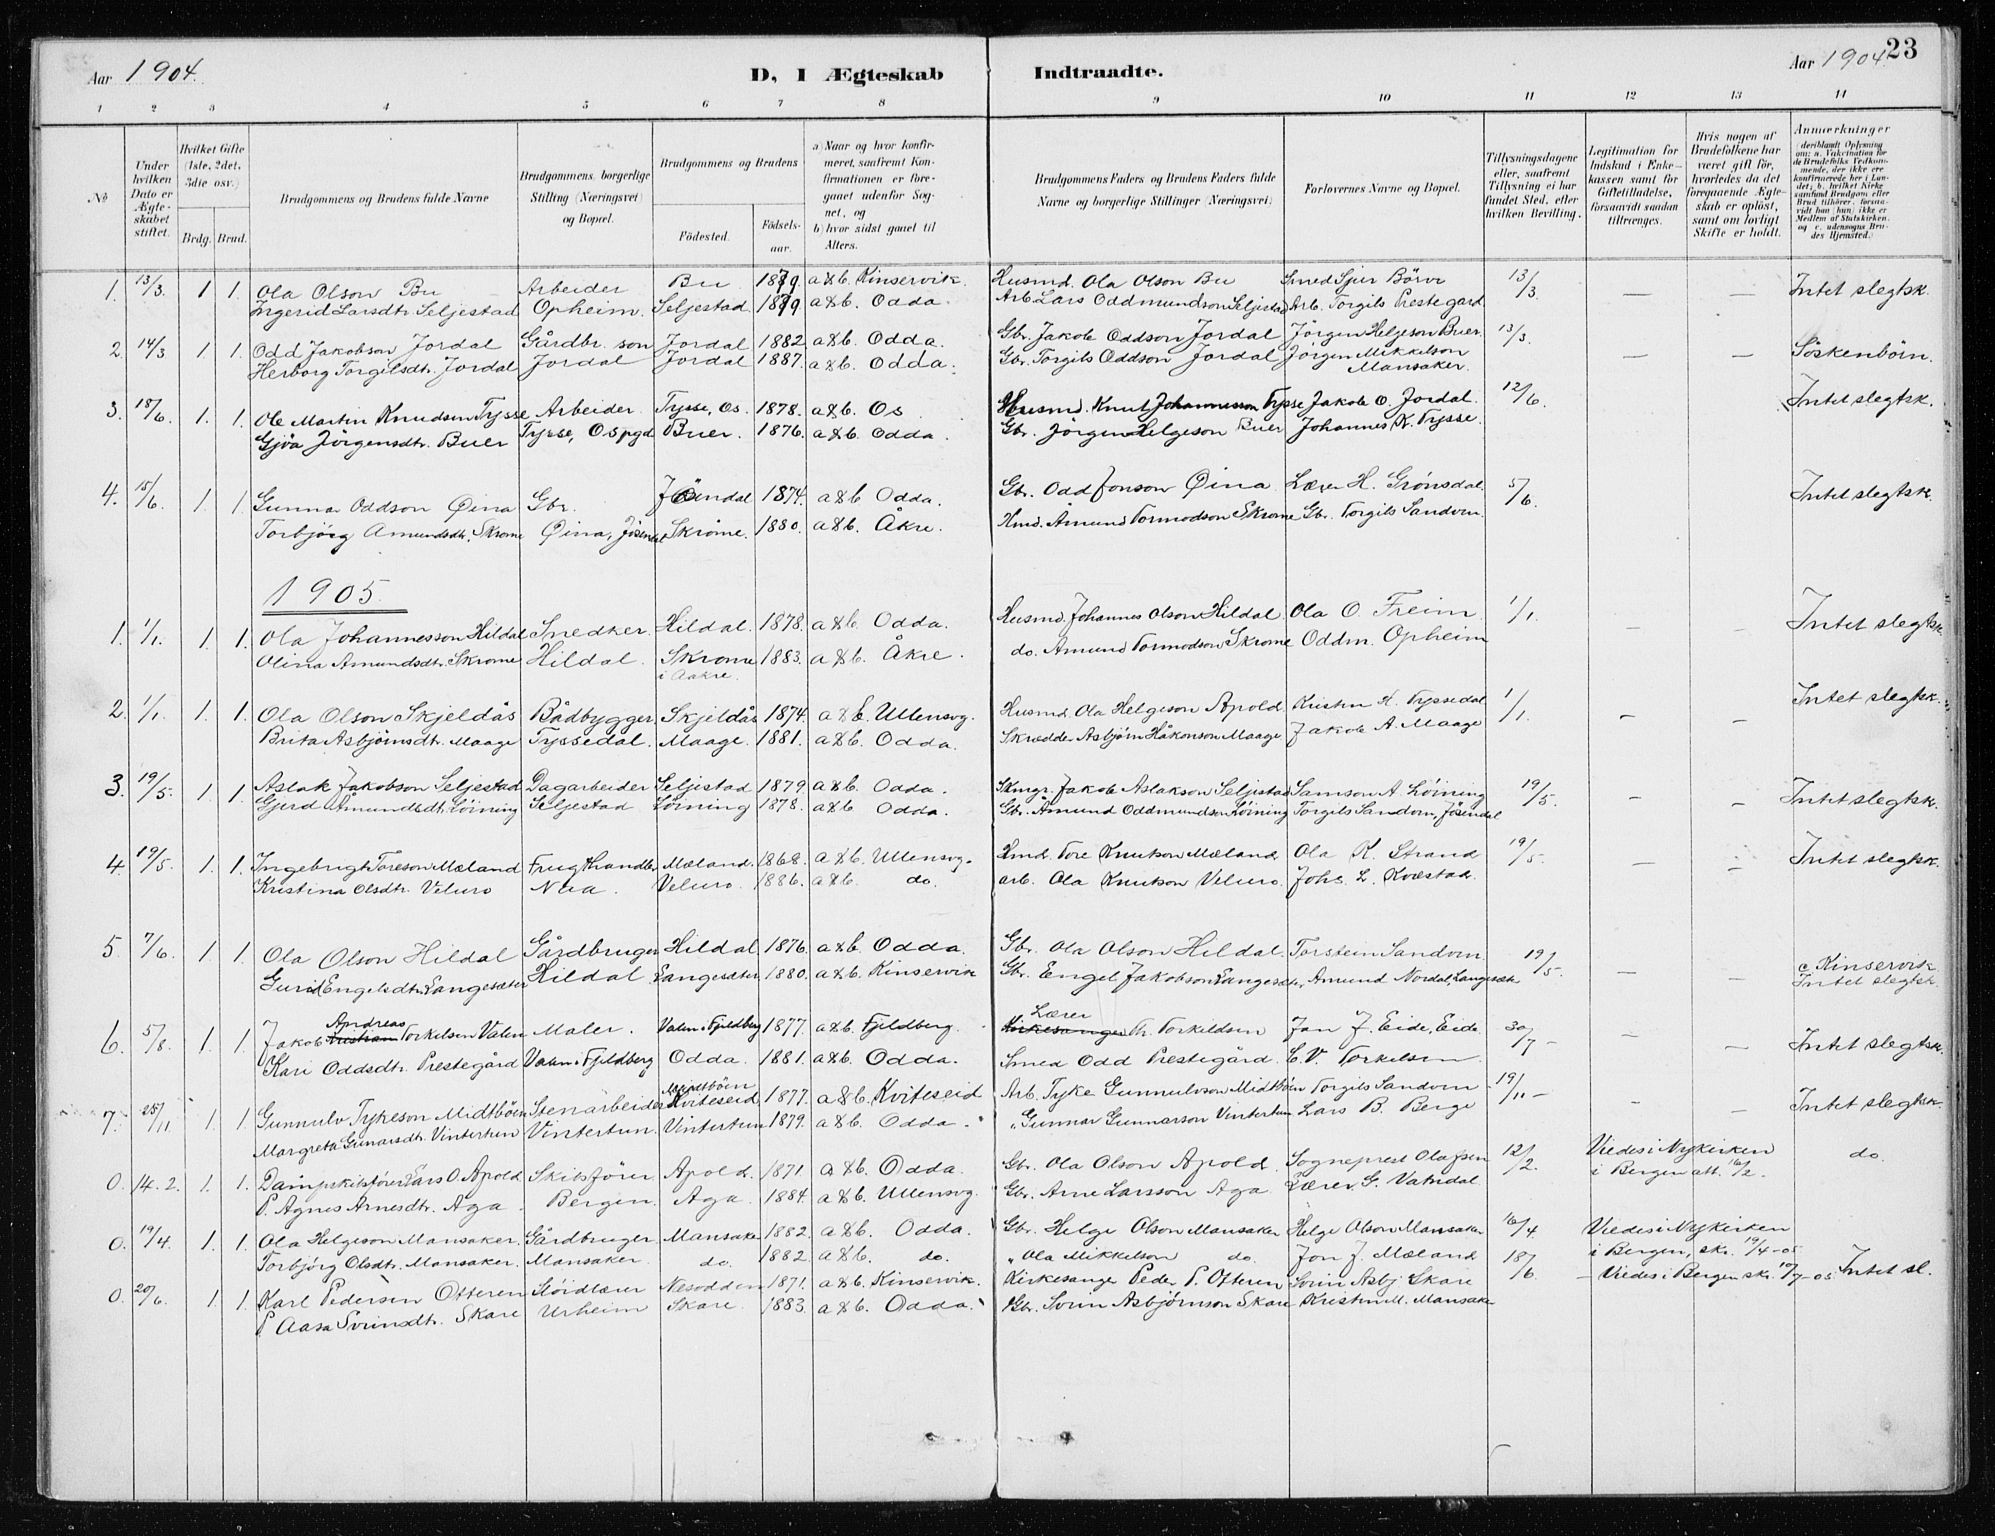 Aar 1904.
D, I Ægteskab Indtraadte.
Aar 1904. 23
1 2 3 4 5 6 7 8 9 10 11 12 13 14
No
Under hvilken Dato er Ægteskabet stiftet.
Hvilket Gifte (1ste, 2det, 3die osv.)
Brdg. Brud.
Brudgommens og Brudens fulde Navne
Brudgommens borgerlige Stilling (Næringsvei) og Bopæl.
Brudgommens og Brudens
Fødested. Fødselsaar.
a) Naar og hvor konfirmeret, saafremt Konfirmationen er foregaaet udenfor Sognet, og
b) hvor sidst gaaet til Alters.
Brudgommens Faders og Brudens Faders fulde Navne og borgerlige Stillinger (Næringsvei)
Forlovernes Navne og Bopæl.
Tillysningsdagene eller, saafremt Tillysning ei har fundet Sted, efter hvilken Bevilling.
Legitimation for Indskud i Enkekassen samt for Giftetilladelse, forsaavidt saadan tiltrænges.
Hvis nogen af Brudefolkene har været gift før, hvorledes da det foregaaende Ægteskab er opløst, samt om lovligt Skifte er holdt.
Anmerkninger (deriblandt Oplysning om: a. Vakcination for de Brudefolks Vedkommende, der ikke ere konfirmerede her i Landet; b. hvilket Kirkesamfund Brudgom eller Brud tilhører, forsaavidt han (hun) ikke er Medlem af Statskirken, og c. udensogns Brudes Hjemsted.)
1. 13/3. 1 1. Ola Olson Bu Arbeider Bu 1879. a&b. Kinservik Husmd. Ola Olson Bu Smed Sjur Börve 13/3. — — Intet slegtsk.
Ingerid Larsdtr. Seljestad Opheim. Seljestad. 1879. a&b. Odda. Arb. Lars Oddmundson Seljestad Arb. Torgils Prestegard
2. 14/3 1. 1. Odd Jakobson Jordal Gårdbr. son Jordal 1882 a&b. Odda. Gbr. Jakob Oddson Jordal Jörgen Helgeson Buer 13/3. — — Söskenbörn.
Herborg Torgilsdtr. Jordal Jordal Jordal 1887. a&b. Odda. Gbr. Torgils Oddson Jordal Jörgen Mikkelson Mansaker.
3. 18/6. 1. 1. Ole Martin Knudsen Tysse Arbeider Tysse, Os. 1878. a&b. Os Husmd. Knut Johannesson Tysse Jakob O. Jordal. 12/6. Intet slegtsk.
Gjöa Jörgensdtr. Buer Tysse, Os pgd Buer. 1876. a&b. Odda. Gbr. Jörgen Helgeson Buer Johannes K. Tysse.
4. 15/6. 1. 1. Gunnar Oddson Øina Gbr. Jösendal 1874. a&b. Odda. Gbr. Odd Jonson Øina Lærer H. Grønsdal 5/6. Intet slegtsk.
Torbjörg Amundsdtr. Skrome Øina, Jösendal Skrome. 1880. a&b. Åkre. Hmd. Åmund Tormodson Skrome Gbr. Torgils Sandvin.
1905.
1. 1/1. 1. 1. Ola Johannesson Hildal Snedker Hildal. 1878. a&b. Odda. Husmd. Johannes Olson Hildal Ola O Freim 1/1. — — Intet slegtsk
Olina Amundsdtr. Skrome Hildal. Skrome i Aakre. 1883. a&b. Åkre. do. Amund Tormodson Skrome Oddm. Opheim
2. 1/1. 1. 1. Ola Olson Skjeldås Bådbygger Skjeldås 1874. a&b. Ullensvg. Husmd. Ola Helgeson Apold Kristen K. Tyssedal 1/1. — — Intet slegtsk.
Brita Asbjörnsdtr. Maage Tyssedal. Maage. 1881. a&b. Odda. Skrædder Asbjörn Håkonson Maage Jakob A. Maage
3. 19/5. 1. 1. Aslak Jakobson Seljestad Dagarbeider Seljestad 1879 a&b. Odda. Jakob Aslakson Seljestad Samson A. Löining 19/5. — — Intet slegtsk.
Gjerd Åmundsdtr. Löining Seljestad Löining 1878. a&b. Odda. Gbr. Åmund Oddmundson Löining Torgils Sandvin, Jösendal
4. 19/5. 1. 1. Ingebrigt Toreson Mæland Frugthandler Mæland. 1868. a&b. Ullensvg. Hmd. Tore Knutson Mæland Ola K. Strand 19/5. — — Intet slegtsk.
Kristina Olsdtr. Velure Naa. Velure. 1886. a&b. do. arb. Ola Knutson Velure. Johs. L. Kvestad.
5. 7/6. 1. 1. Ola Olson Hildal Gårdbruger Hildal 1876. a&b. Odda. Gbr. Ola Olson Hildal. Torstein Sandvin. 19/5. — — c. Kinservik.
Gurid Engelsdtr. Langesæter Hildal Langesæter 1880. a&b. Kinservik Gbr. Engel Jakobson Langesæter, Amund Nordal, Langesæt. Intet slegtsk.
6. 5/8. 1. 1. Jakob Andreas Torkelsen Valen Maler. Valen i Fjeldberg 1877. a&b. Fjeldberg. Lærer Th. Torkildsen Jan J. Eide, Eide. 30/7 — — — Intet slegtsk.
Kari Oddsdtr. Prestegård Valen i Fjeldberg Odda. 1881. a&b. Odda. Smed Odd Prestegård. C. V. Torkelsen
7. 25/11. 1. 1. Gunnulv Tykeson Midtböen Stenarbeider Midtböen Kviteseid. 1877. a&b. Kviteseid Arb. Tyke Gunnulvson Midtböen Torgils Sandvin 19/11 — — — Intet slegtsk.
Margreta Gunarsdtr. Vintertun Vintertun. Vintertun 1879. a&b. Odda. „ Gunnar Gunnarson Vintertun Lars B. Berge
0. 14. 2. 1. 1. Dampskibsförer Lars O. Apold Skibsförer Apold. 1871. a&b. Odda. Gbr. Ola Olson Apold. Sogneprest Olafsen 12/2. Viedes i Nykirken do.
P. Agnes Arnesdtr. Aga. Bergen. Aga. 1884. a&b. Ullensvg. Gbr. Arne Larsson Aga Lærer G. Vatndal. i Bergen att. 16/2.
0. 19/4. 1. 1. Ola Helgeson Mansaker. Gårdbruger Mansaker 1882. a&b. Odda. Gbr. Helge Olson Mansaker Helge Olson Mansaker 16/4 Viedes i Nykirken
Torbjörg Olsdtr. Mansaker. Mansaker. do. 1882. a&b. do. „ Ola Mikkelson do. Jon J. Mæland. i Bergen, skr. 19/4-05
0. 20/6. 1. 1. Karl Pedersen Otteren Slöidlærer Nesodden 1871. a&b. Kinservik. Kirkesanger Peder P. Otteren Svein Asbj. Skare 18/6. — Viedes i Bergen skr. 10/7-05. Intet sl.
P Aasa Sveinsdtr. Skare Urheim Skare. 1883. a&b. Odda. Gbr. Svein Asbjörnson Skare Kristen M. Mansaker